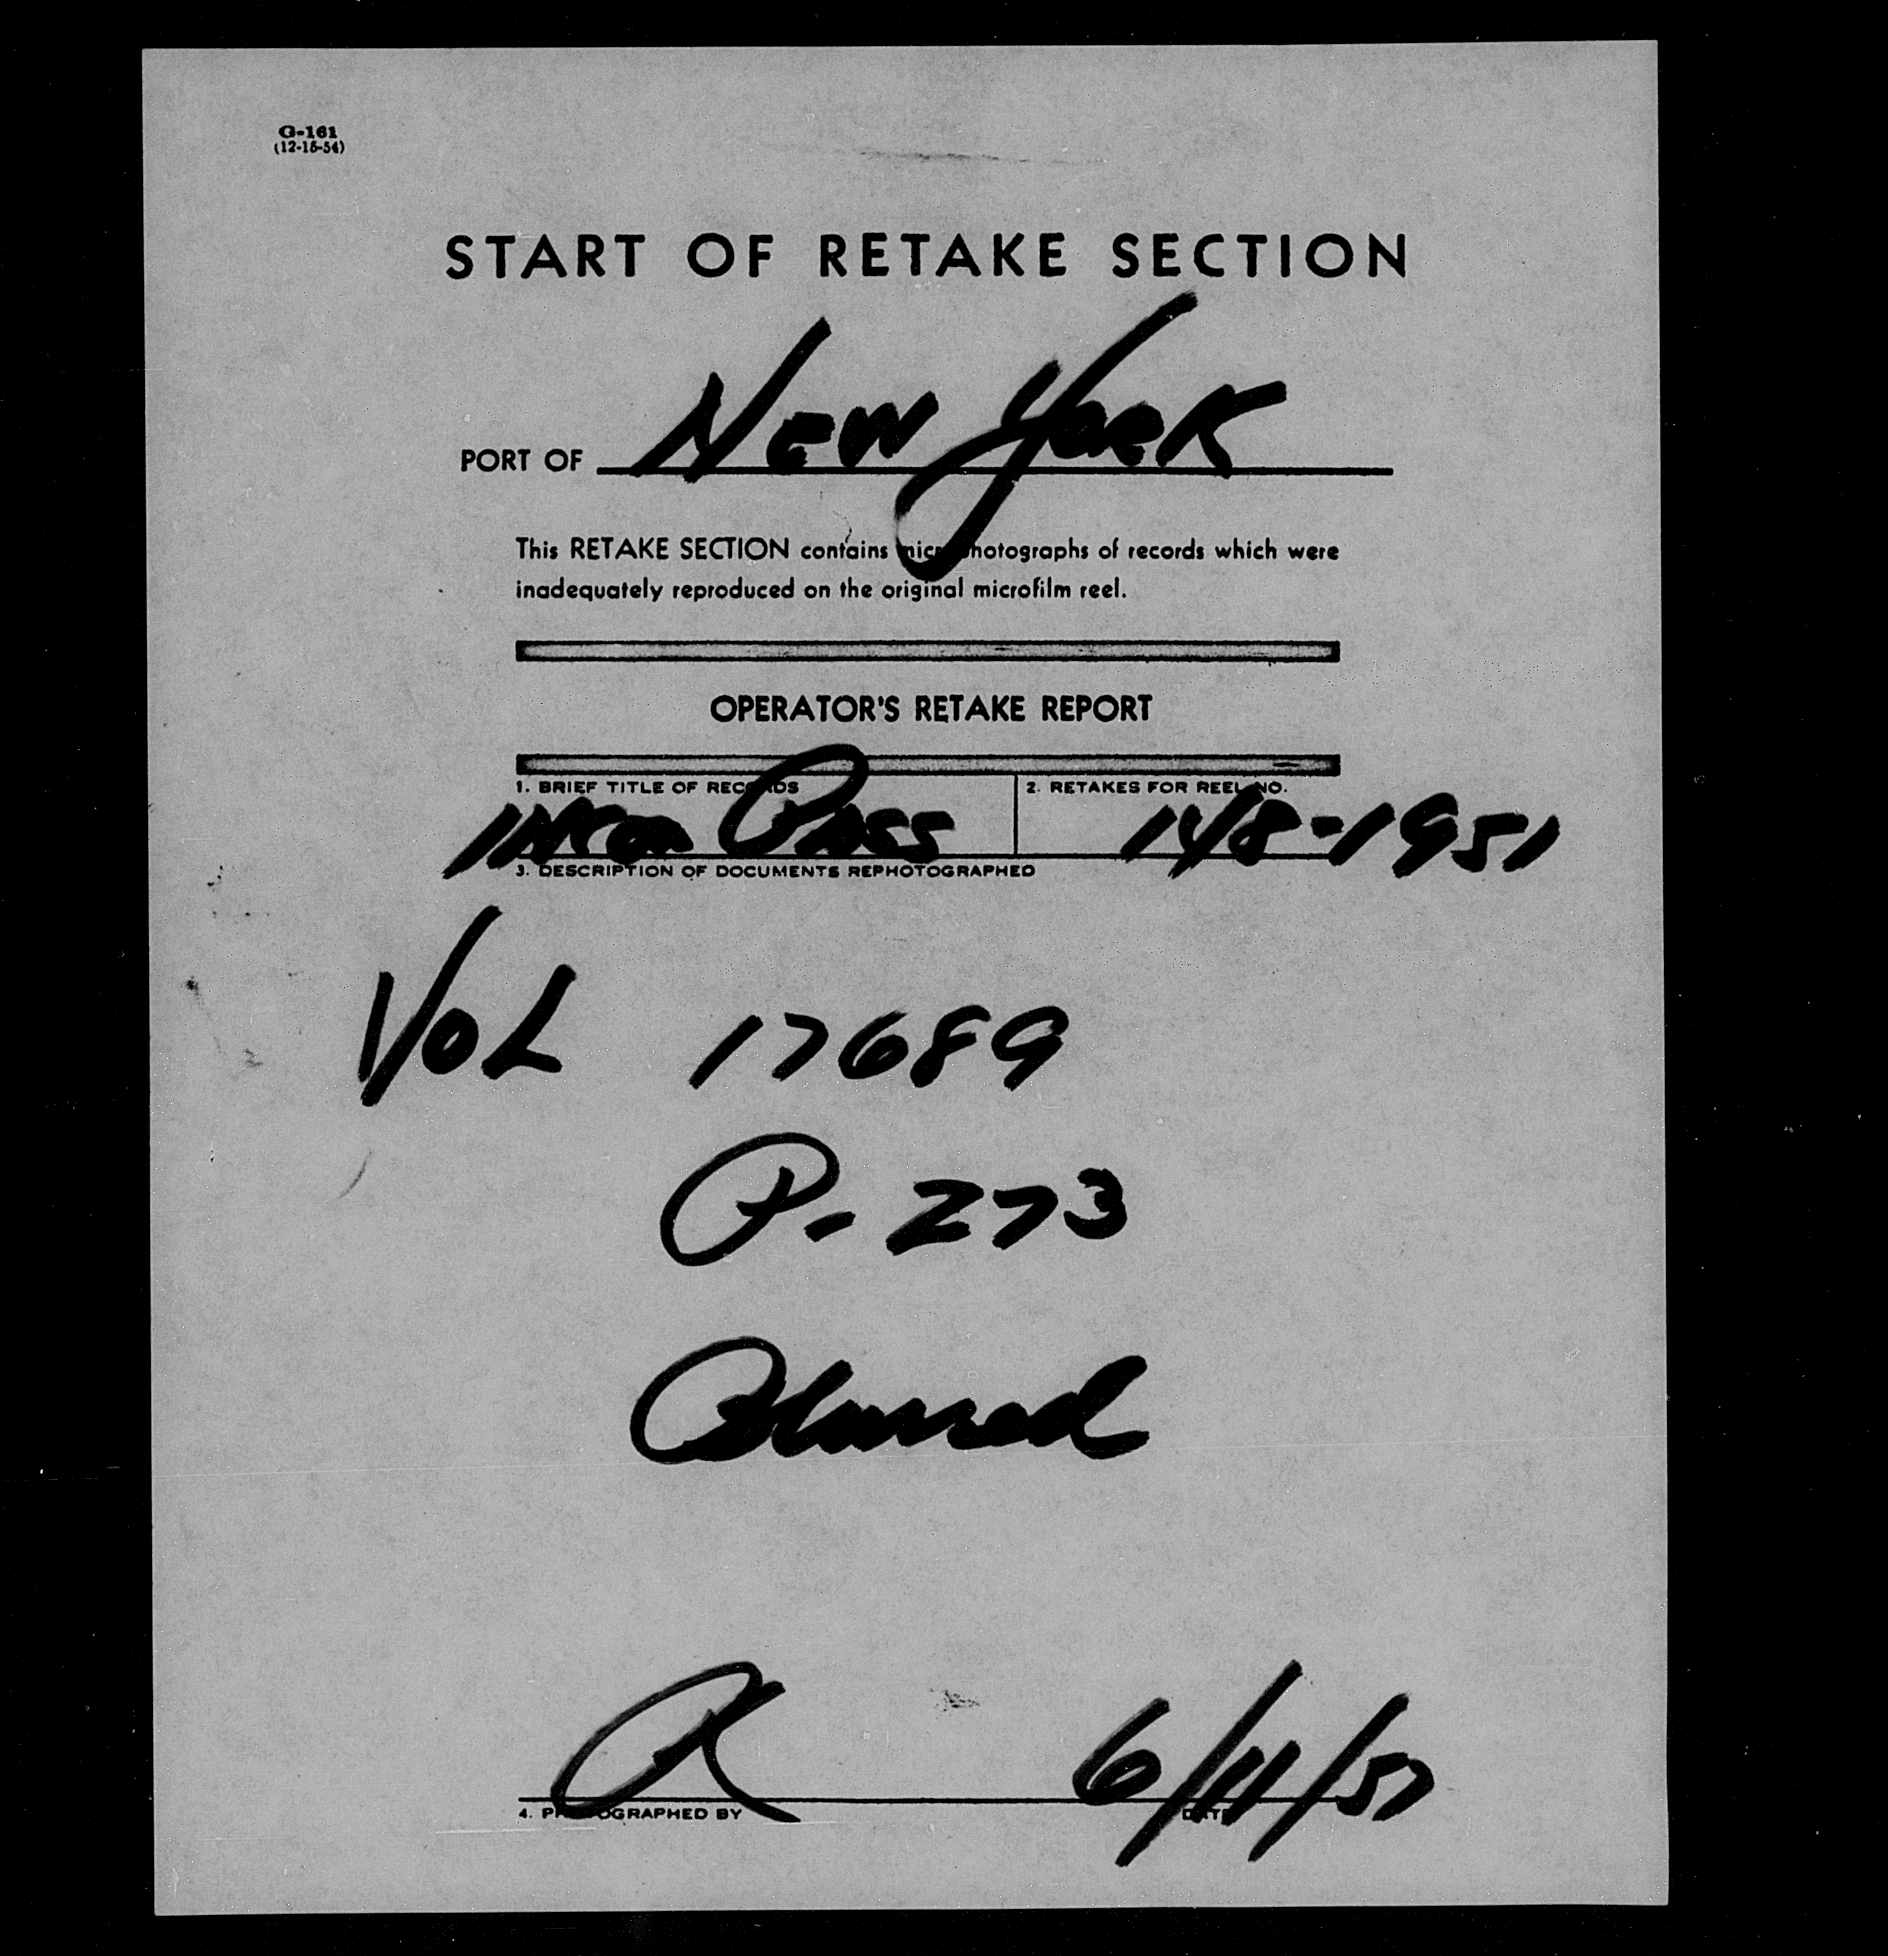 G-161
(12-15-54)
START OF RETAKE SECTION
PORT OF New York
This RETAKE SECTION contains microphotographs of records which were
inadequately reproduced on the original microfilm reel.
OPERATOR'S RETAKE REPORT
1. BRIEF TITLE OF RECORDS 2. RETAKES FOR REEL NO.
Pass 148-1951
3. DESCRIPTION OF DOCUMENTS REPHOTOGRAPHED
Vol 17689
P. 273
Blurred
6/11/57
4. PHOTOGRAPHED BY DATE